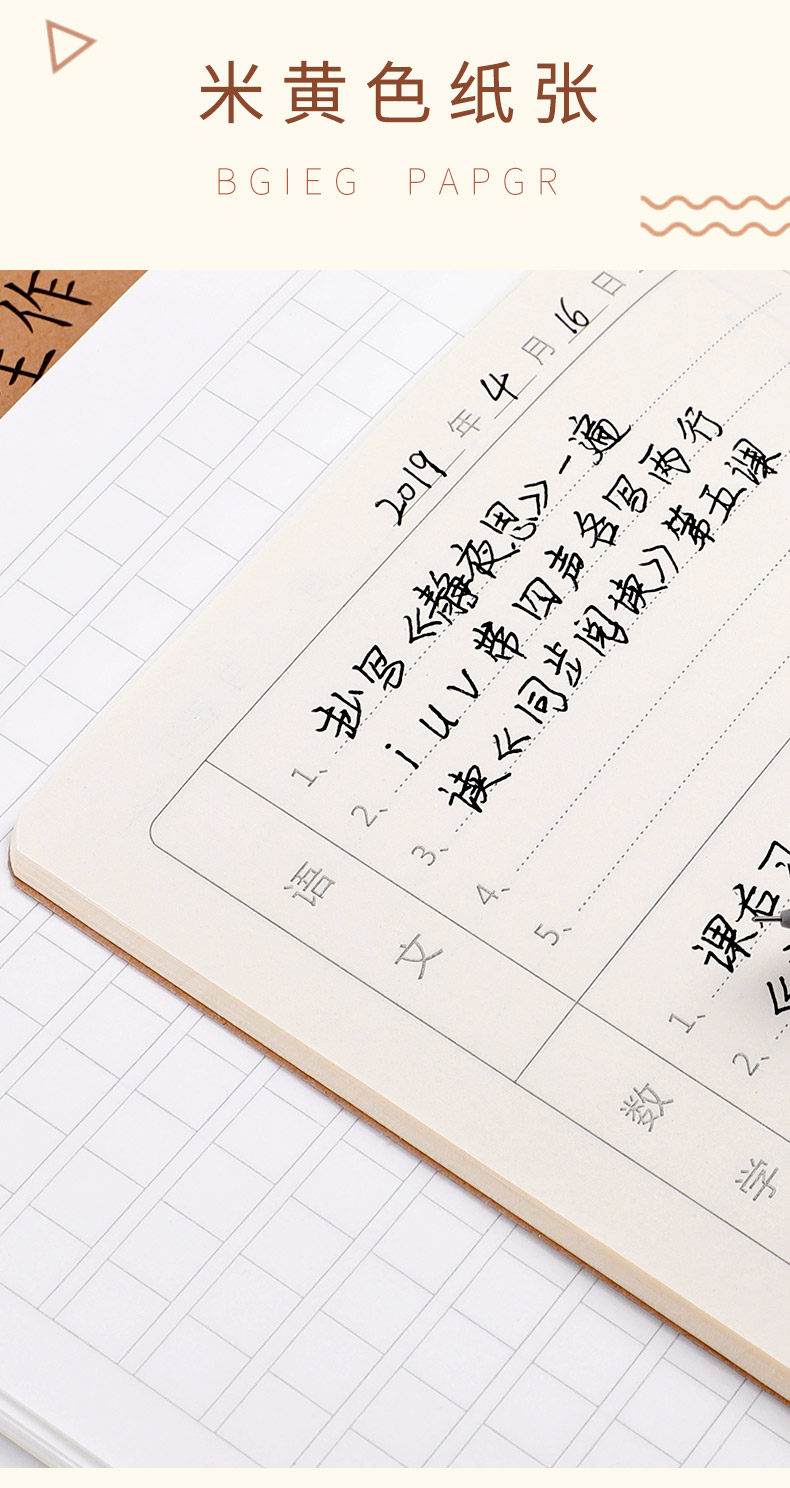 米黄色纸张
BGIEG PAPGR
作
2019 年 4 月 16 日
语文
1、抄写《静夜思》一遍
2、i u v 带四声各写两行
3、读《同步阅读》第五课
4、
5、
数学
1、课后
2、《